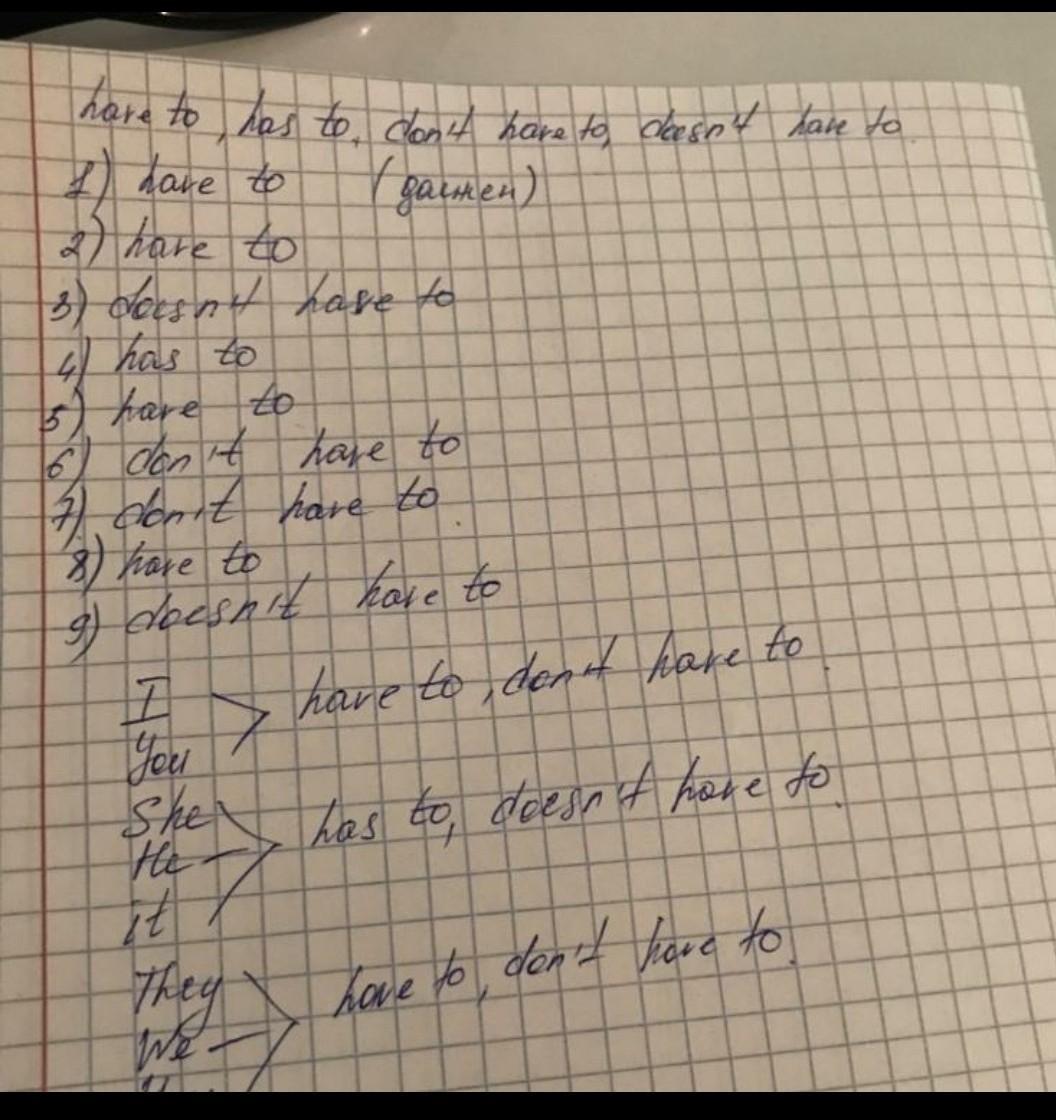 have to, has to, don't have to, doesn't have to.
1) have to (должен)
2) have to
3) doesn't have to
4) has to
5) have to
6) don't have to
7) don't have to.
8) have to
9) doesn't have to
I
have to, don't have to.
You
She
has to, doesn't have to.
He
it
They
have to, don't have to.
We